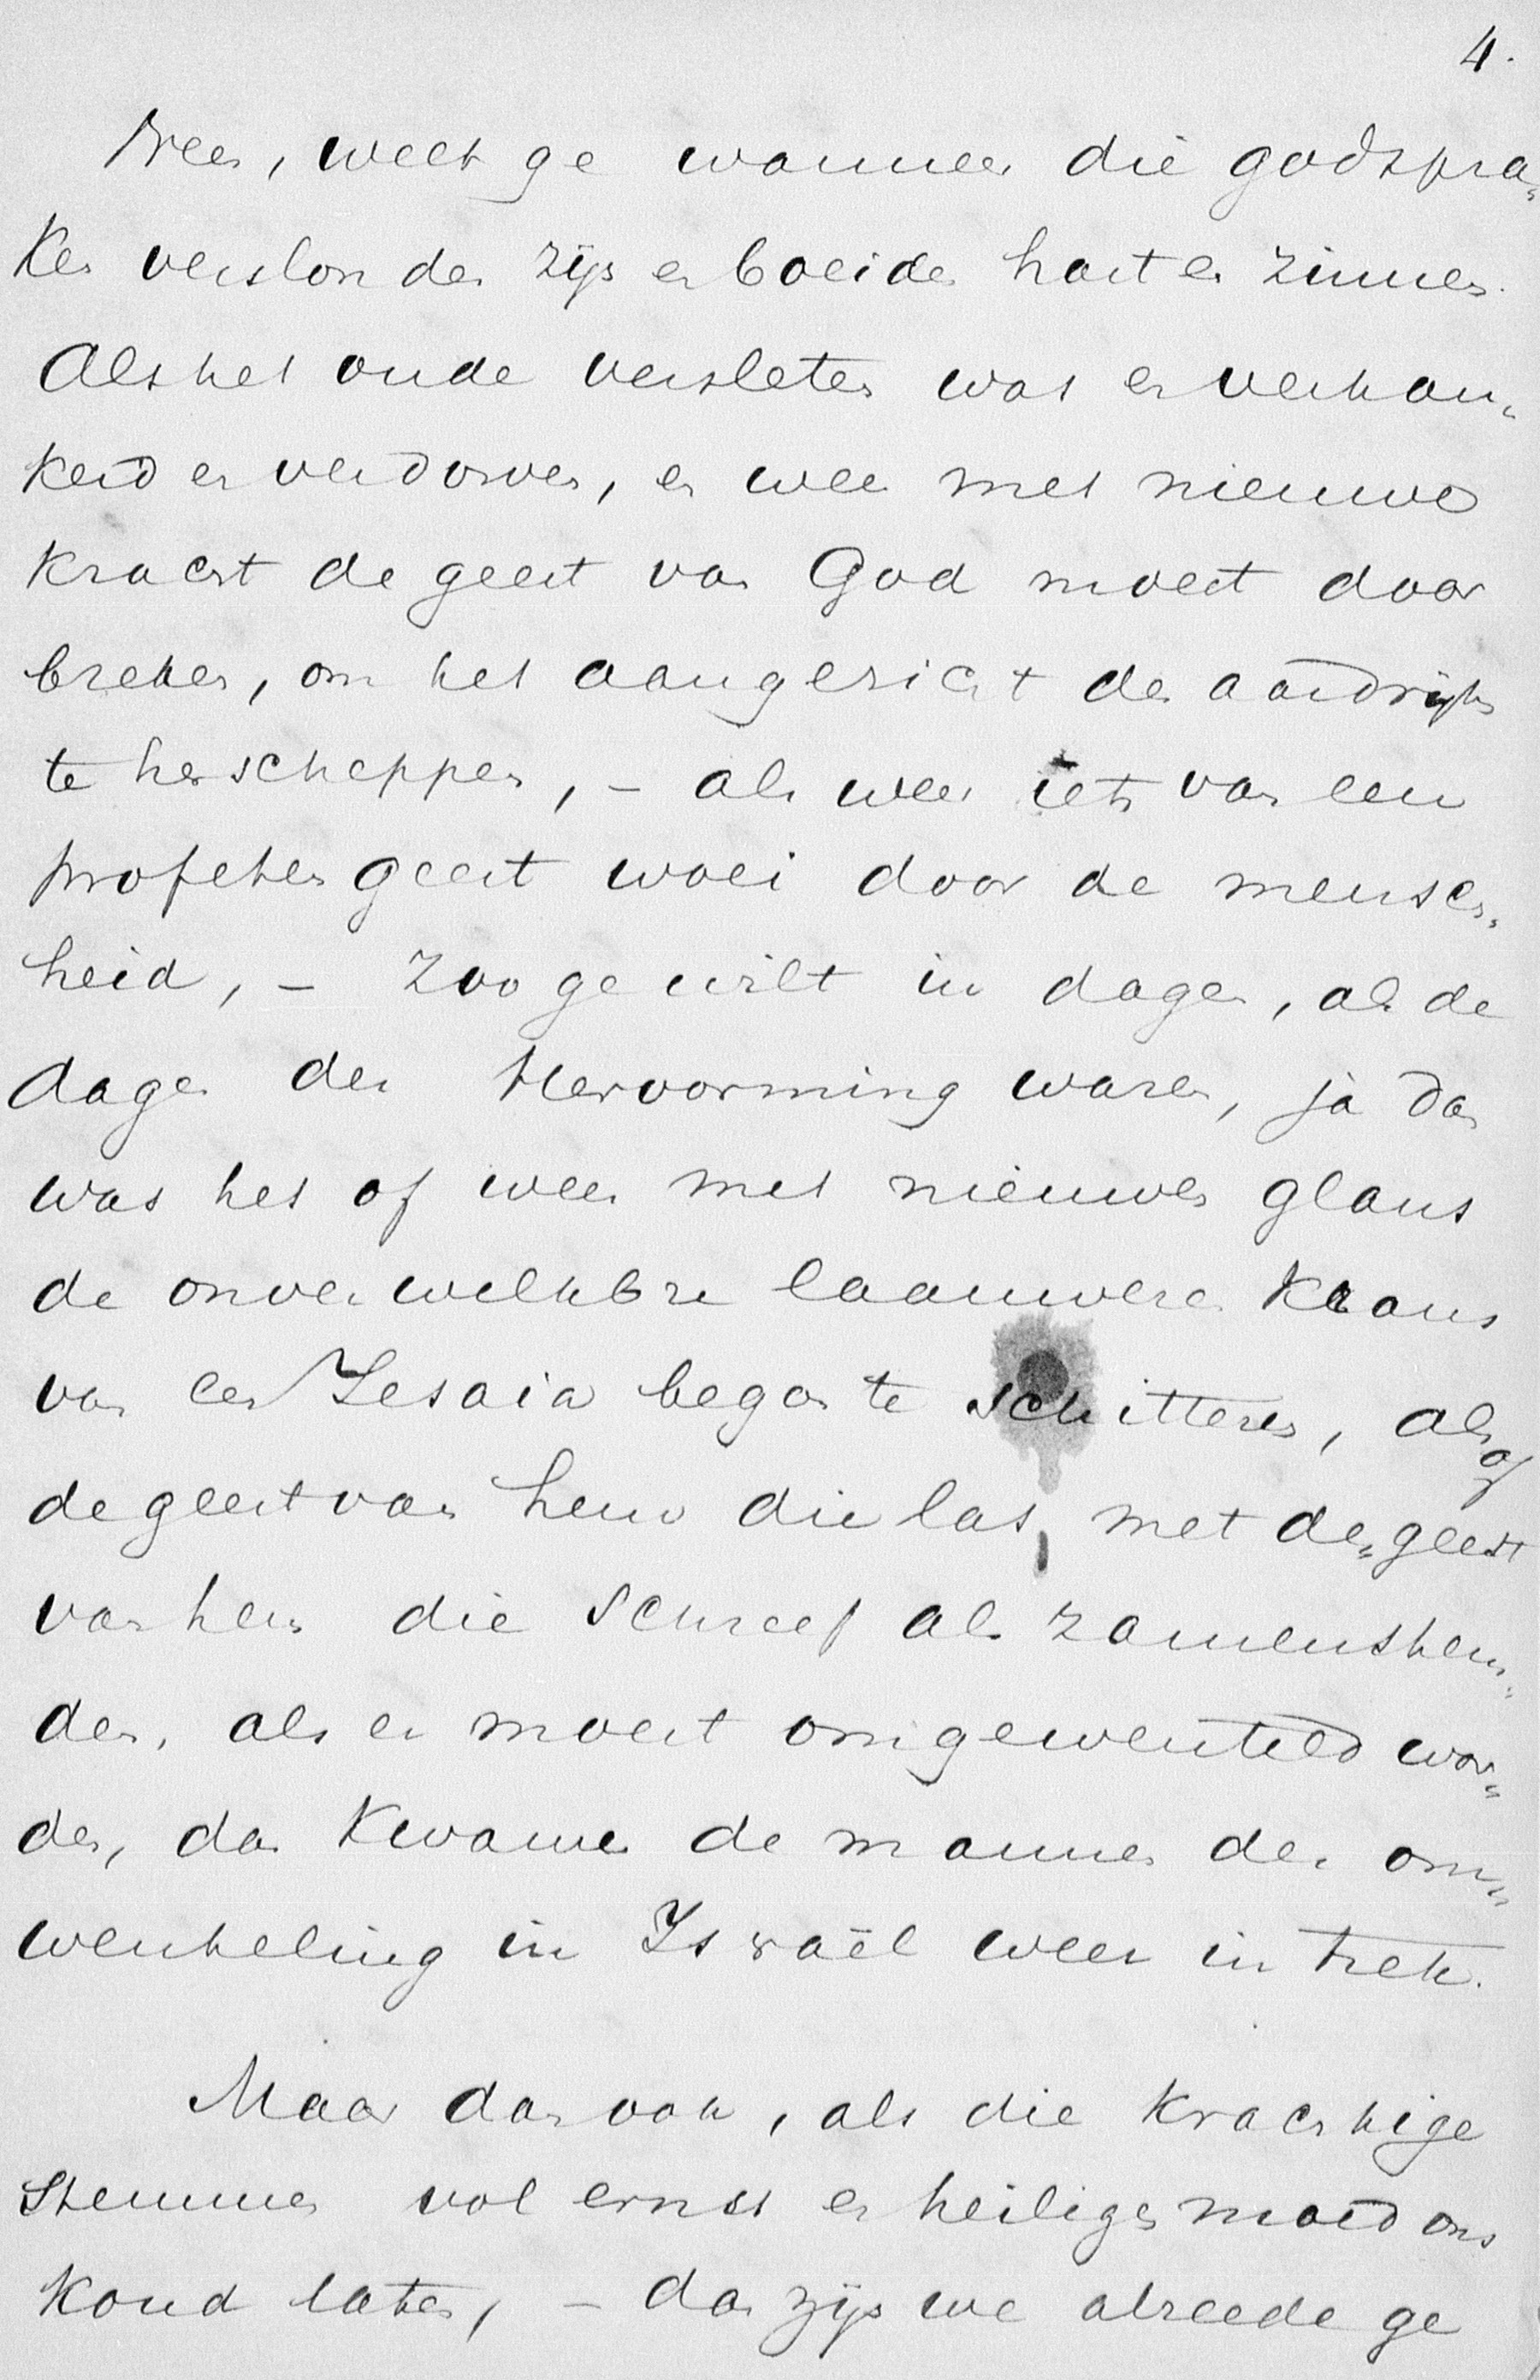 4.
Neen, weet ge wanneer die godspra„
ken verslonden zijn en boeiden hart en zinnen.
Als het oude versleten was en verkan„
kerd en verdorven, en weer met nieuwe
kracht de geest van God moest door
breken, om het aangezicht des aardrijks
te herscheppen, – als weer iets van een
profetengeest woei door de mensch„
heid, – zoo ge wilt in dagen, als de
dagen der Hervorming waren, ja dan
was het of weer met nieuwen glans
de onverwelkbre laauweren krans
van een Jesaia began te schitteren, als of
de geest van hem die las, met de„geest
van hem die schreef als zamenstem„
den. als er moest omgewenteld wor„
den, dan kwamen de mannen der om„
wenteling in Israël weer in trek.
Maar dan ook, als die krachtige
stemmen vol ernst en heiligen moed ons
koud laten, – dan zijn we alreede ge